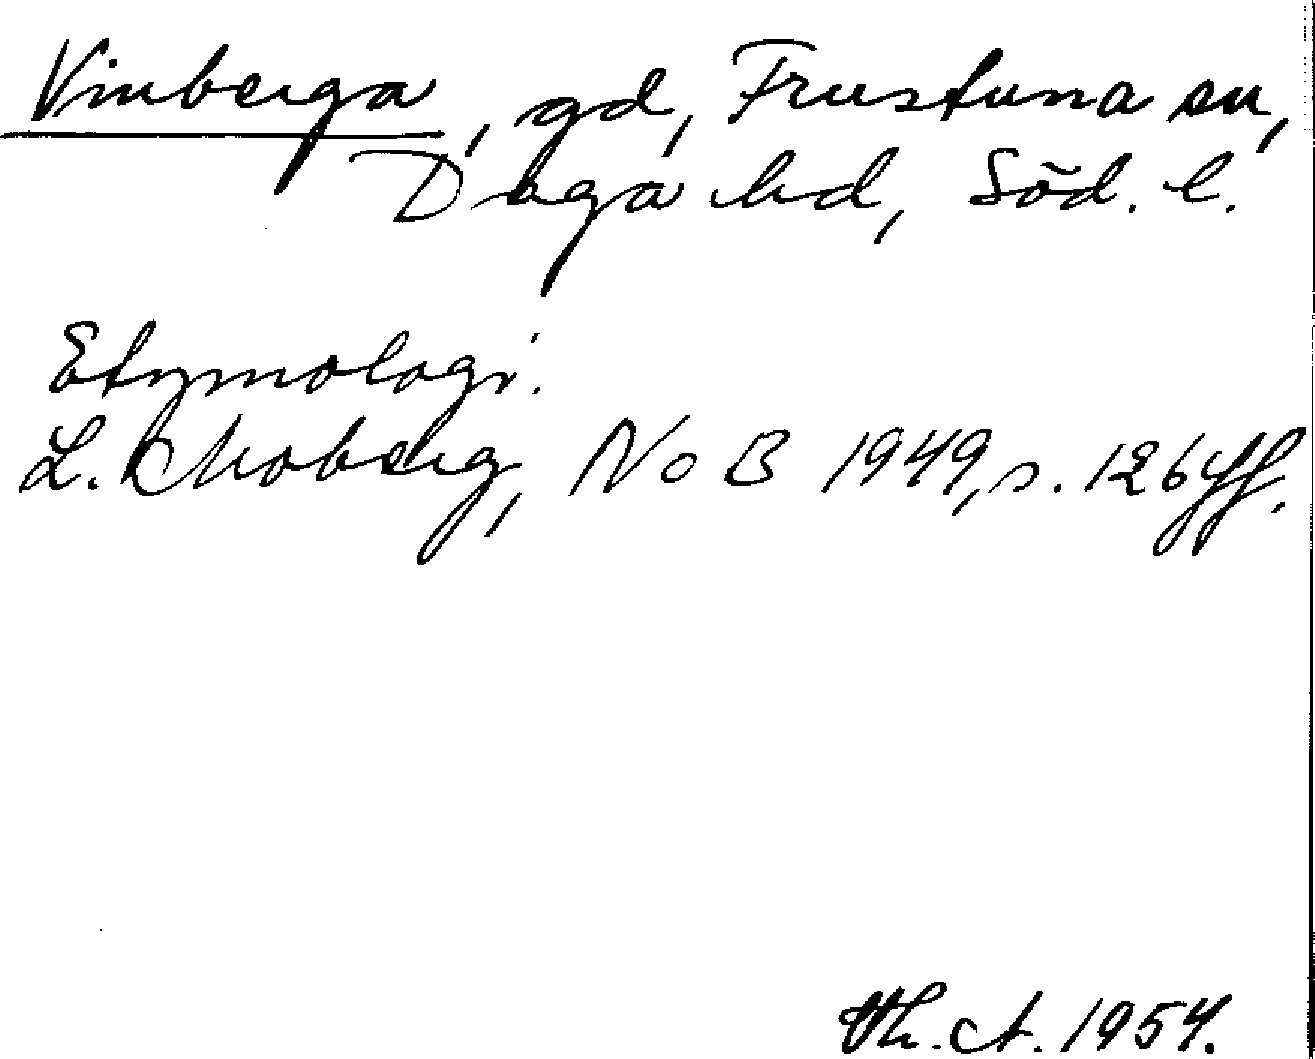 Vinberga, gd, Frustuna sn,
Daga hd, Söd. l.
Etymologi.
L. Moberg, NoB 1949, s. 126 ff.
Th. A. 1954.